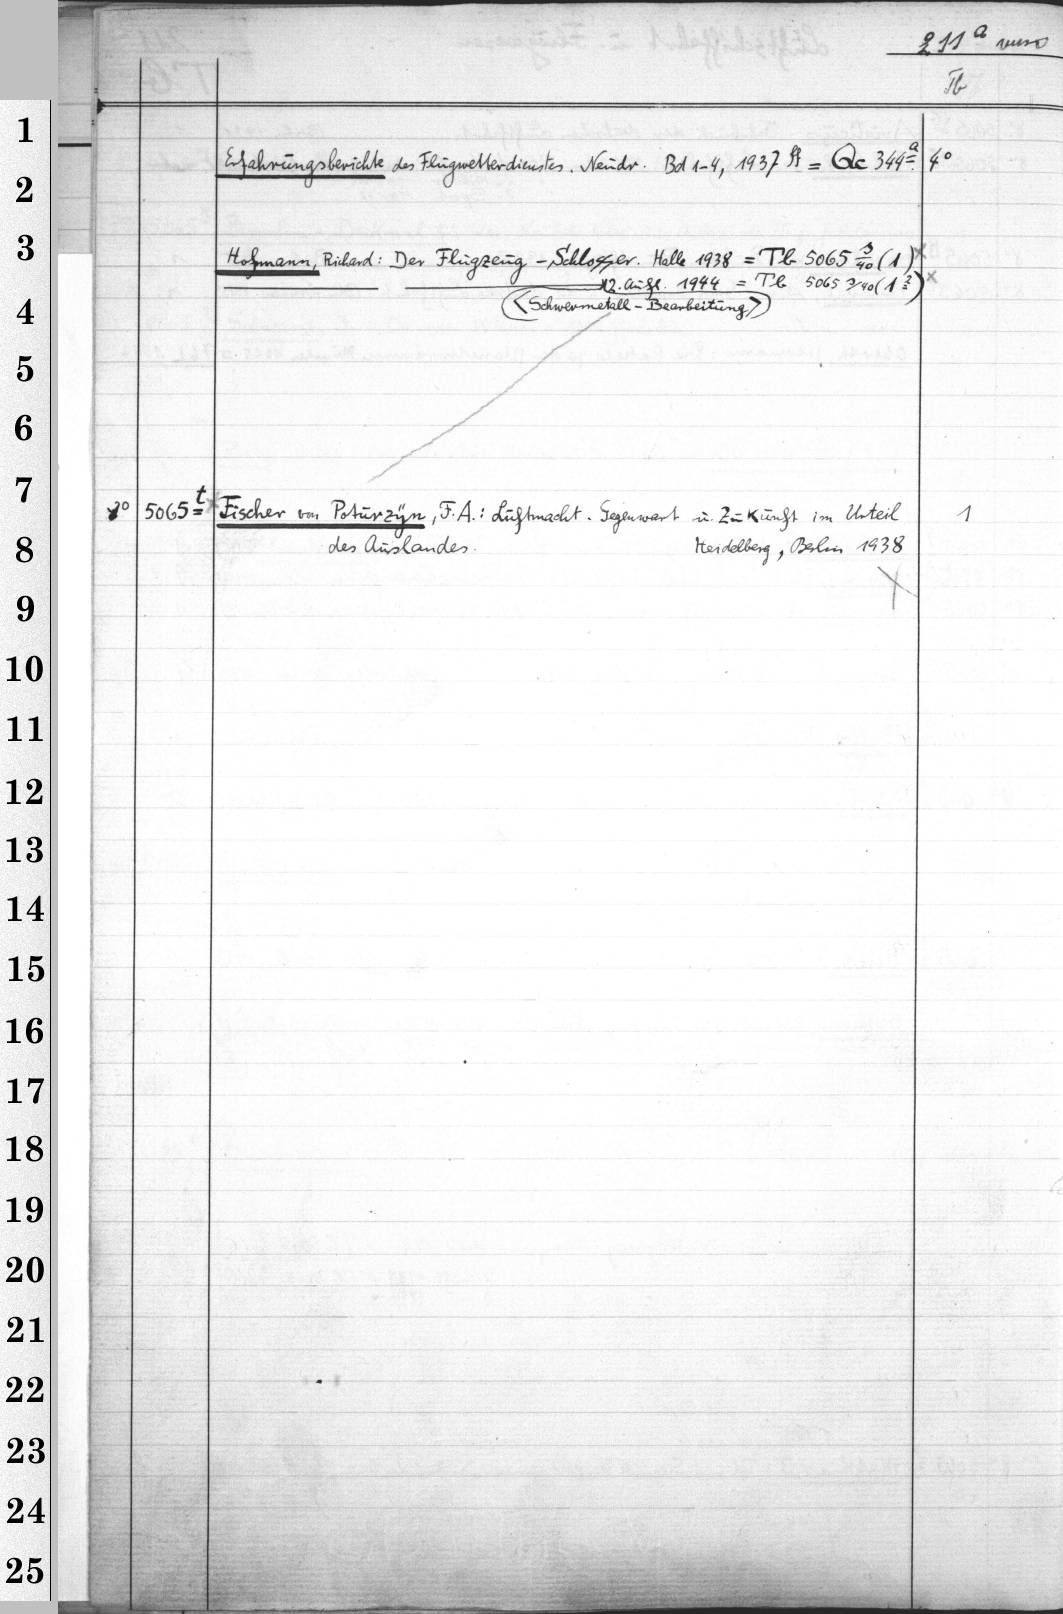 211 a verso
Tb
1
Erfahrungsberichte des Flugwetterdienstes. Neudr. Bd 1-4, 1937 ff = Qc 344 a 4°
2
3
Hofmann, Richard: Der Flugzeug-Schlosser. Halle 1938 = Tb 5065 3/40 (1) x
12. Aufl. 1944 = Tb 5065 3/40 (1 2) x
4
<Schwermetall-Bearbeitung>
5
6
7
8° 5065 t x Fischer von Poturzÿn, F.A.: Luftmacht. Gegenwart u. Zukunft im Urteil 1
8
des Auslandes. Heidelberg, Berlin 1938
9
10
11
12
13
14
15
16
17
18
19
20
21
22
23
24
25